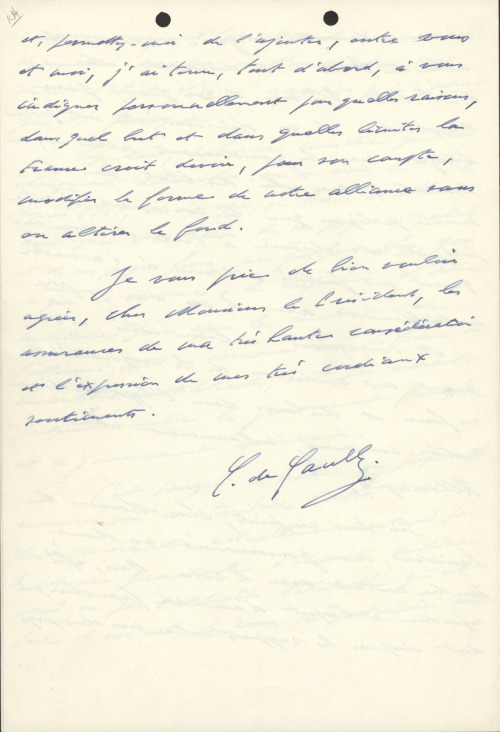 et, permettez-moi de l'ajouter, entre vous
et moi, j'ai tenu, tout d'abord, à vous
indiquer personnellement pour quelles raisons,
dans quel but et dans quelles limites la
France croit devoir, pour son compte,
modifier la forme de notre alliance sans
en altérer le fond.
Je vous prie de bien vouloir
agréer, cher Monsieur le Président, les
assurances de ma très haute considération
et l'expression de mes très cordiaux
sentiments.
C. de Gaulle.